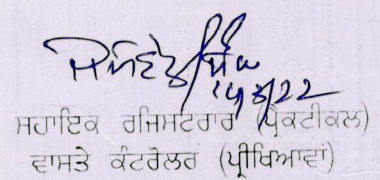 ਸਹਾਇਕ ਰਜਿਸਟਰਾਰ (ਪ੍ਰੈਕਟੀਕਲ)
ਵਾਸਤੇ ਕੰਟਰੋਲਰ (ਪ੍ਰੀਖਿਆਵਾਂ)